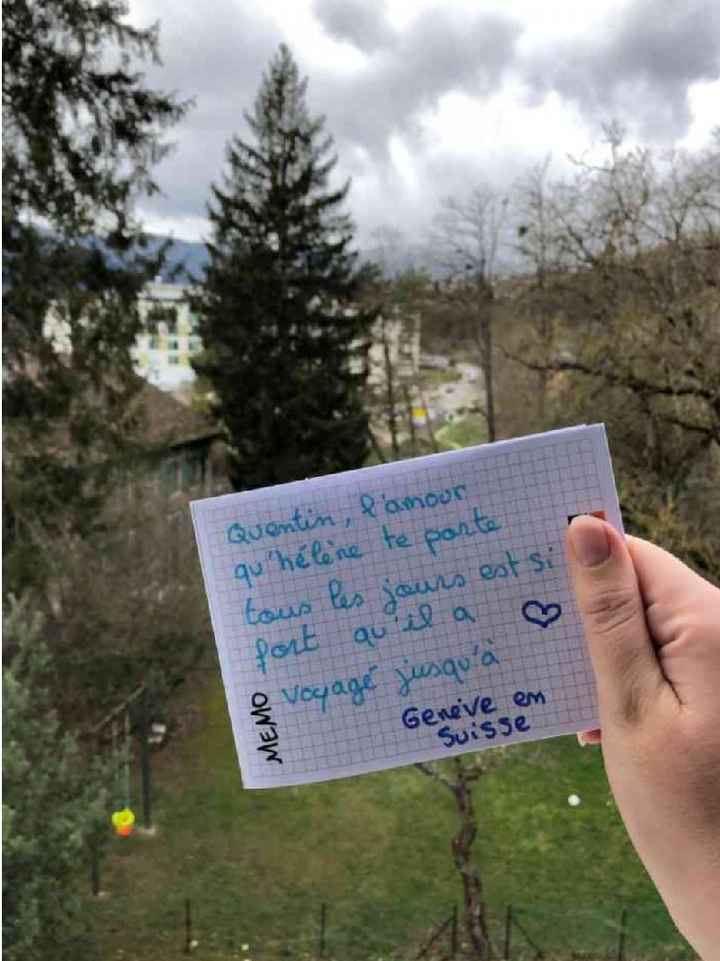 Quentin, l'amour
qu'hélène te porte
tous les jours est si
fort qu'il a
voyagé jusqu'à
Genève en
Suisse
MEMO